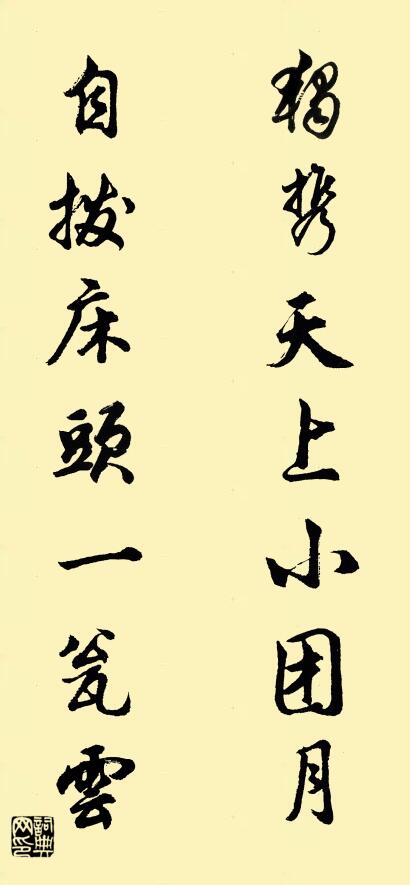 獨携天上小团月
自拨床頭一瓮雲
詞典网印